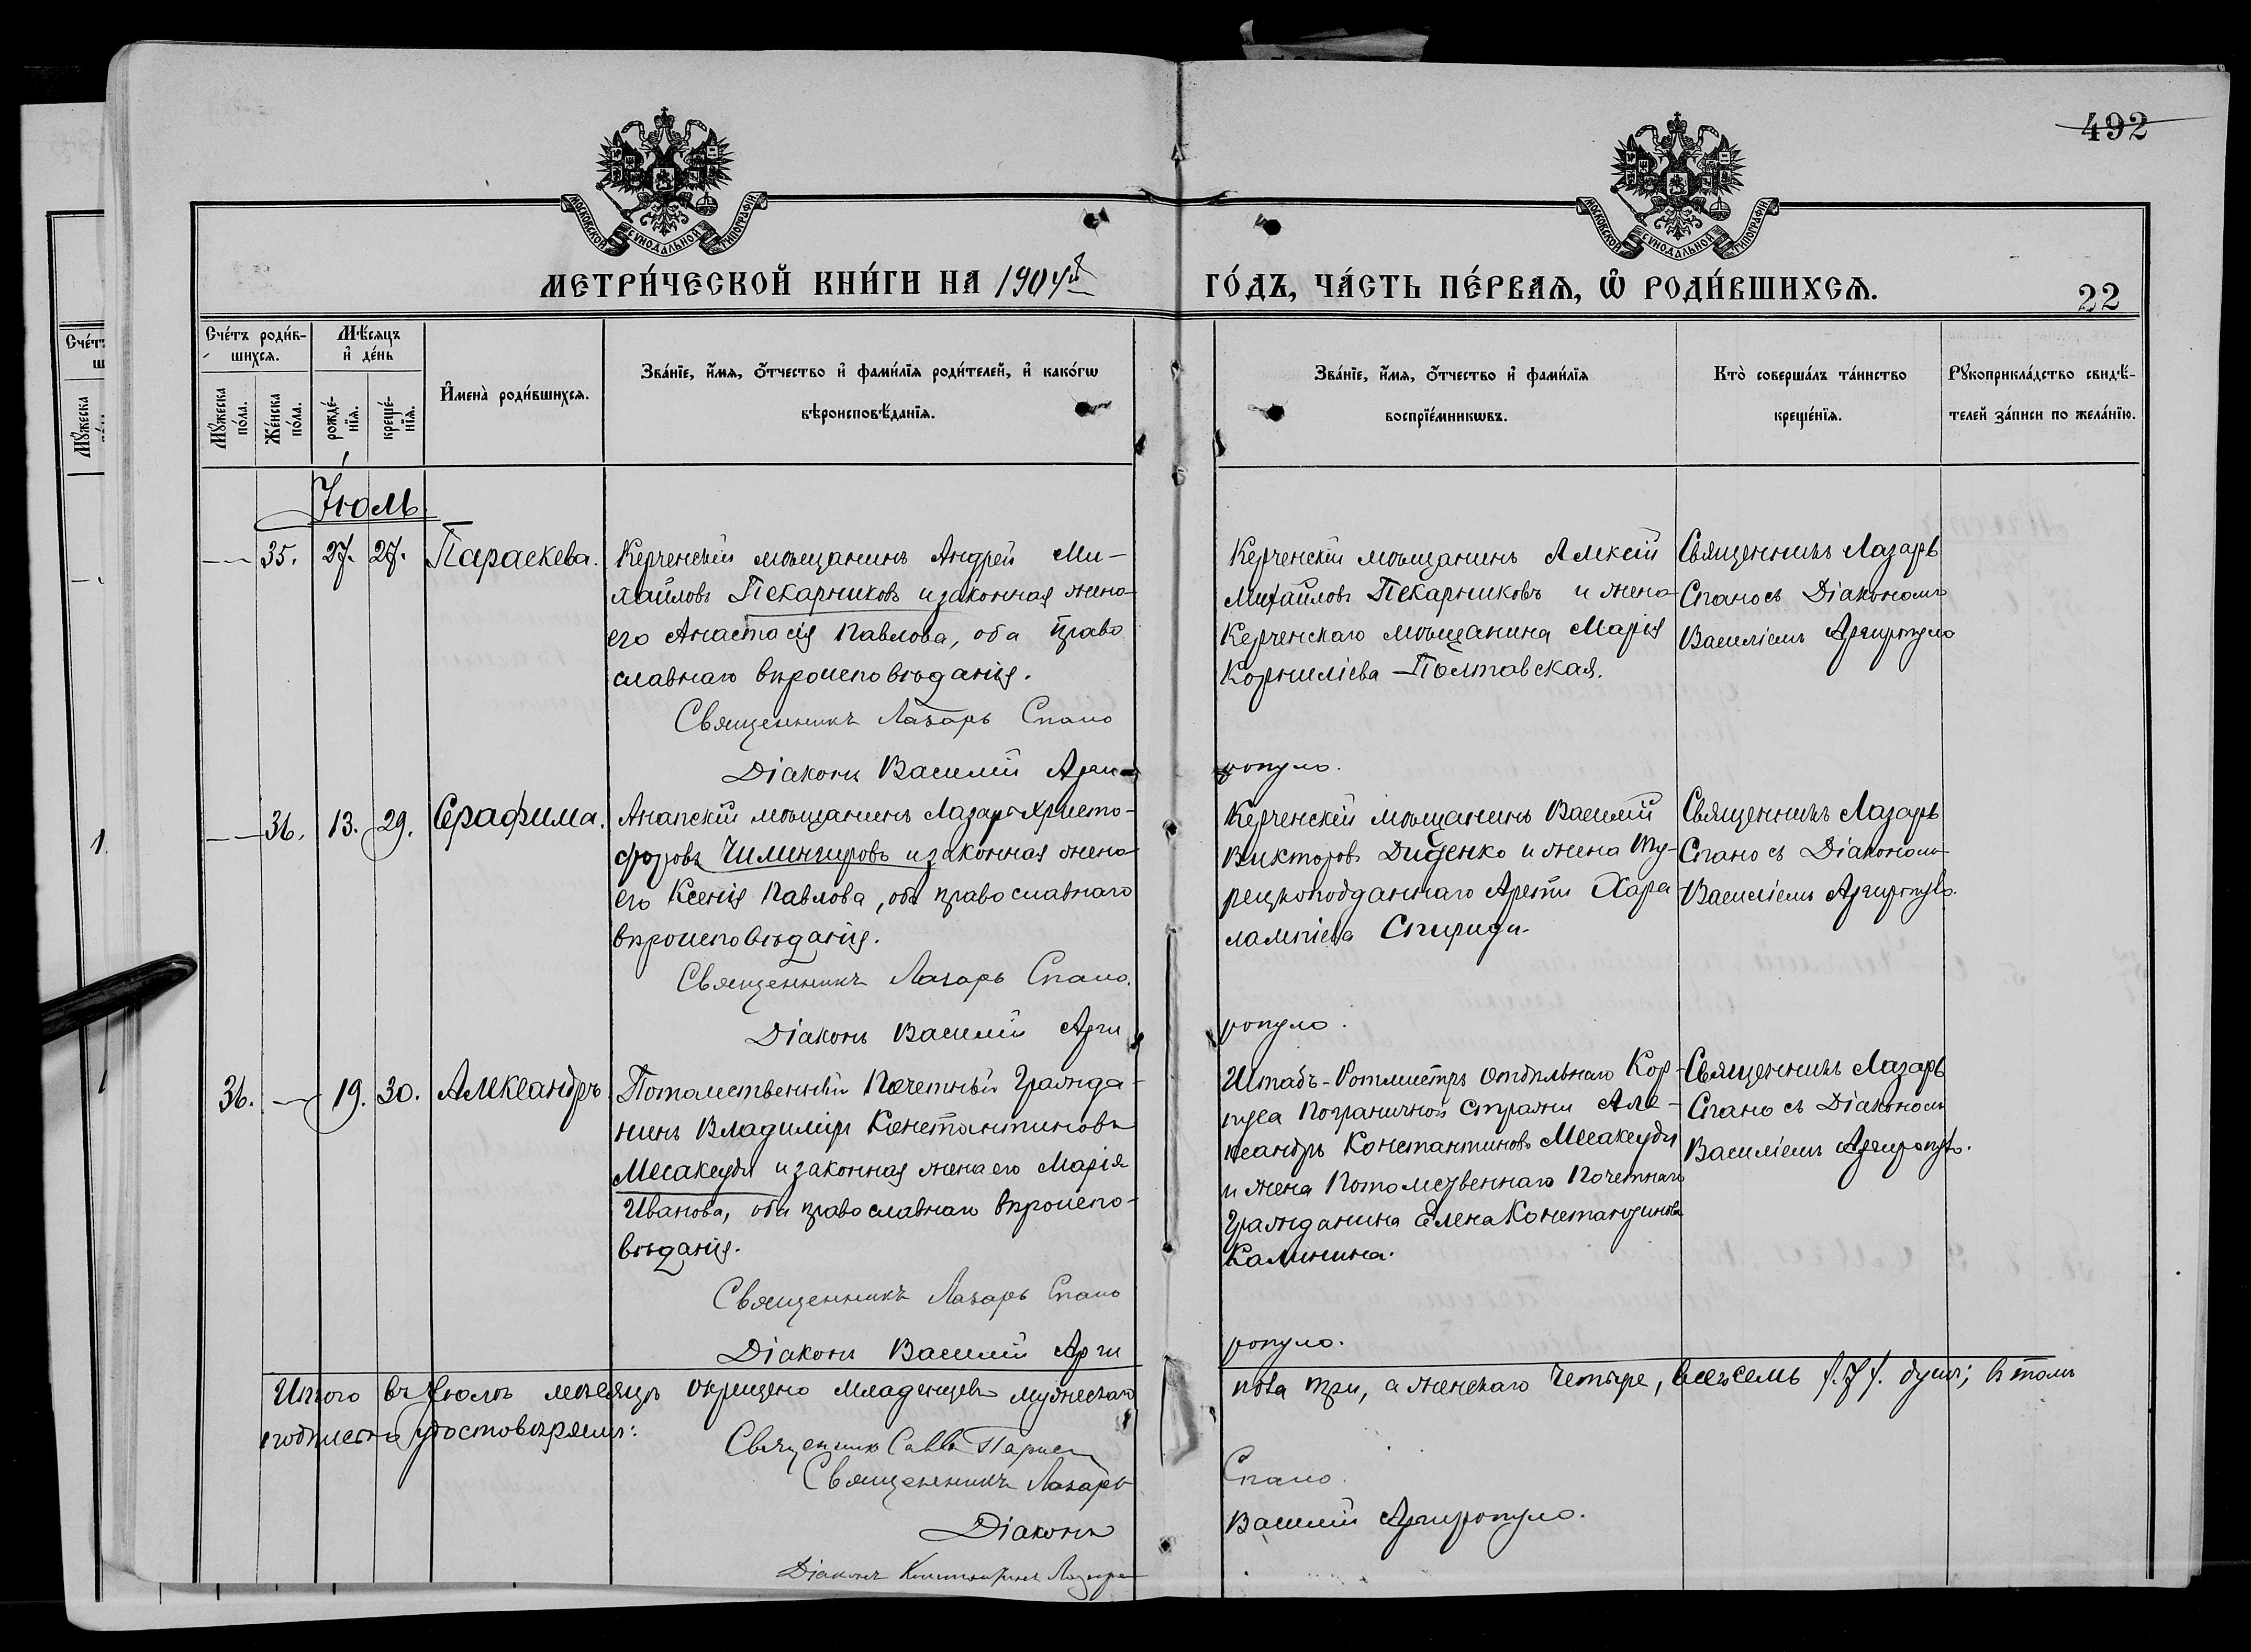 492
МОСКОВСКОЙ СѴНОДАЛЬНОЙ ТИПОГРАФІИ
МОСКОВСКОЙ СѴНОДАЛЬНОЙ ТИПОГРАФІИ
МЕТРИ́ЧЕСКОЙ КНИ́ГИ НА 1904й
ГО́ДЪ, ЧА́СТЬ ПЕ́РВАѦ, Ѡ҆ РОДИ́ВШИХСѦ.
22
Сче́тъ роди́в-
шихсѧ.
Мꙋ́жеска по́ла.
Же́нска по́ла.
Мѣ́сѧцъ и҆ де́нь
рожде́-нїѧ.
креще́-нїѧ.
И҆мена̀ роди́вшихсѧ.
Зва́нїе, и҆́мѧ, ѻ҆́тчество и҆ фами́лїѧ роди́телей, и҆ како́гѡ
вѣроисповѣ́данїѧ.
Зва́нїе, и҆́мѧ, ѻ҆́тчество и҆ фами́лїѧ
воспрїе́мникѡвъ.
Кто̀ соверша́лъ та́инство
креще́нїѧ.
Рꙋкоприкла́дство свидѣ́-
телей за́писи по жела́нїю.
Іюль
35. 27. 27. Параскева.
Керченскій мѣщанинъ Андрей Ми-
хайловъ Пекарниковъ и законная жена
его Анастасія Павлова, оба право
славнаго вѣроисповѣданія.
Священникъ Лазарь Спано
Діаконъ Василій Арги
Керченскій мѣщанинъ Алексій
Михайловъ Пекарниковъ и жена
Керченскаго мѣщанина Марія
Корниліева Полтавская.
ропуло.
Священникъ Лазарь
Спано съ Діакономъ
Василіемъ Аргиропуло
36. 13. 29. Серафима.
Анапскій мѣщанинъ Лазарь Христо-
форовъ Чилингировъ и законная жена
его Ксенія Павлова, оба православнаго
вѣроисповѣданія.
Священникъ Лазарь Спано.
Діаконъ Василій Арги
Керченскій мѣщанинъ Василій
Викторовъ Диденко и жена Ту-
рецкоподданнаго Арети Хара
лампіева Спириди
ропуло.
Священникъ Лазарь
Спано съ Діакономъ
Василіемъ Аргиропуло.
36. 19. 30. Александръ
Потомственный Почетный Гражда-
нинъ Владиміръ Константиновъ
Месаксуди и законная жена его Марія
Иванова, оба православнаго вѣроиспо-
вѣданія.
Священникъ Лазарь Спано
Діаконъ Василій Арги
Штабъ-Ротмистръ Отдѣльнаго Кор-
пуса Пограничной Стражи Але-
ксандръ Константиновъ Месаксуди
и жена Потомственнаго Почетнаго
Гражданина Елена Константинова
Калинина.
ропуло.
Священникъ Лазарь
Спано съ Діакономъ
Василіемъ Аргиропуло.
Итого въ Іюлѣ мѣсяцѣ окрещено младенцевъ мужескаго
пола три, а женскаго четыре, всего семь /.7/. душъ; въ томъ
подписью удостовѣряемъ:
Священникъ Савва
Священникъ Лазарь
Спано.
Діаконъ
Василій Аргиропуло.
Діаконъ